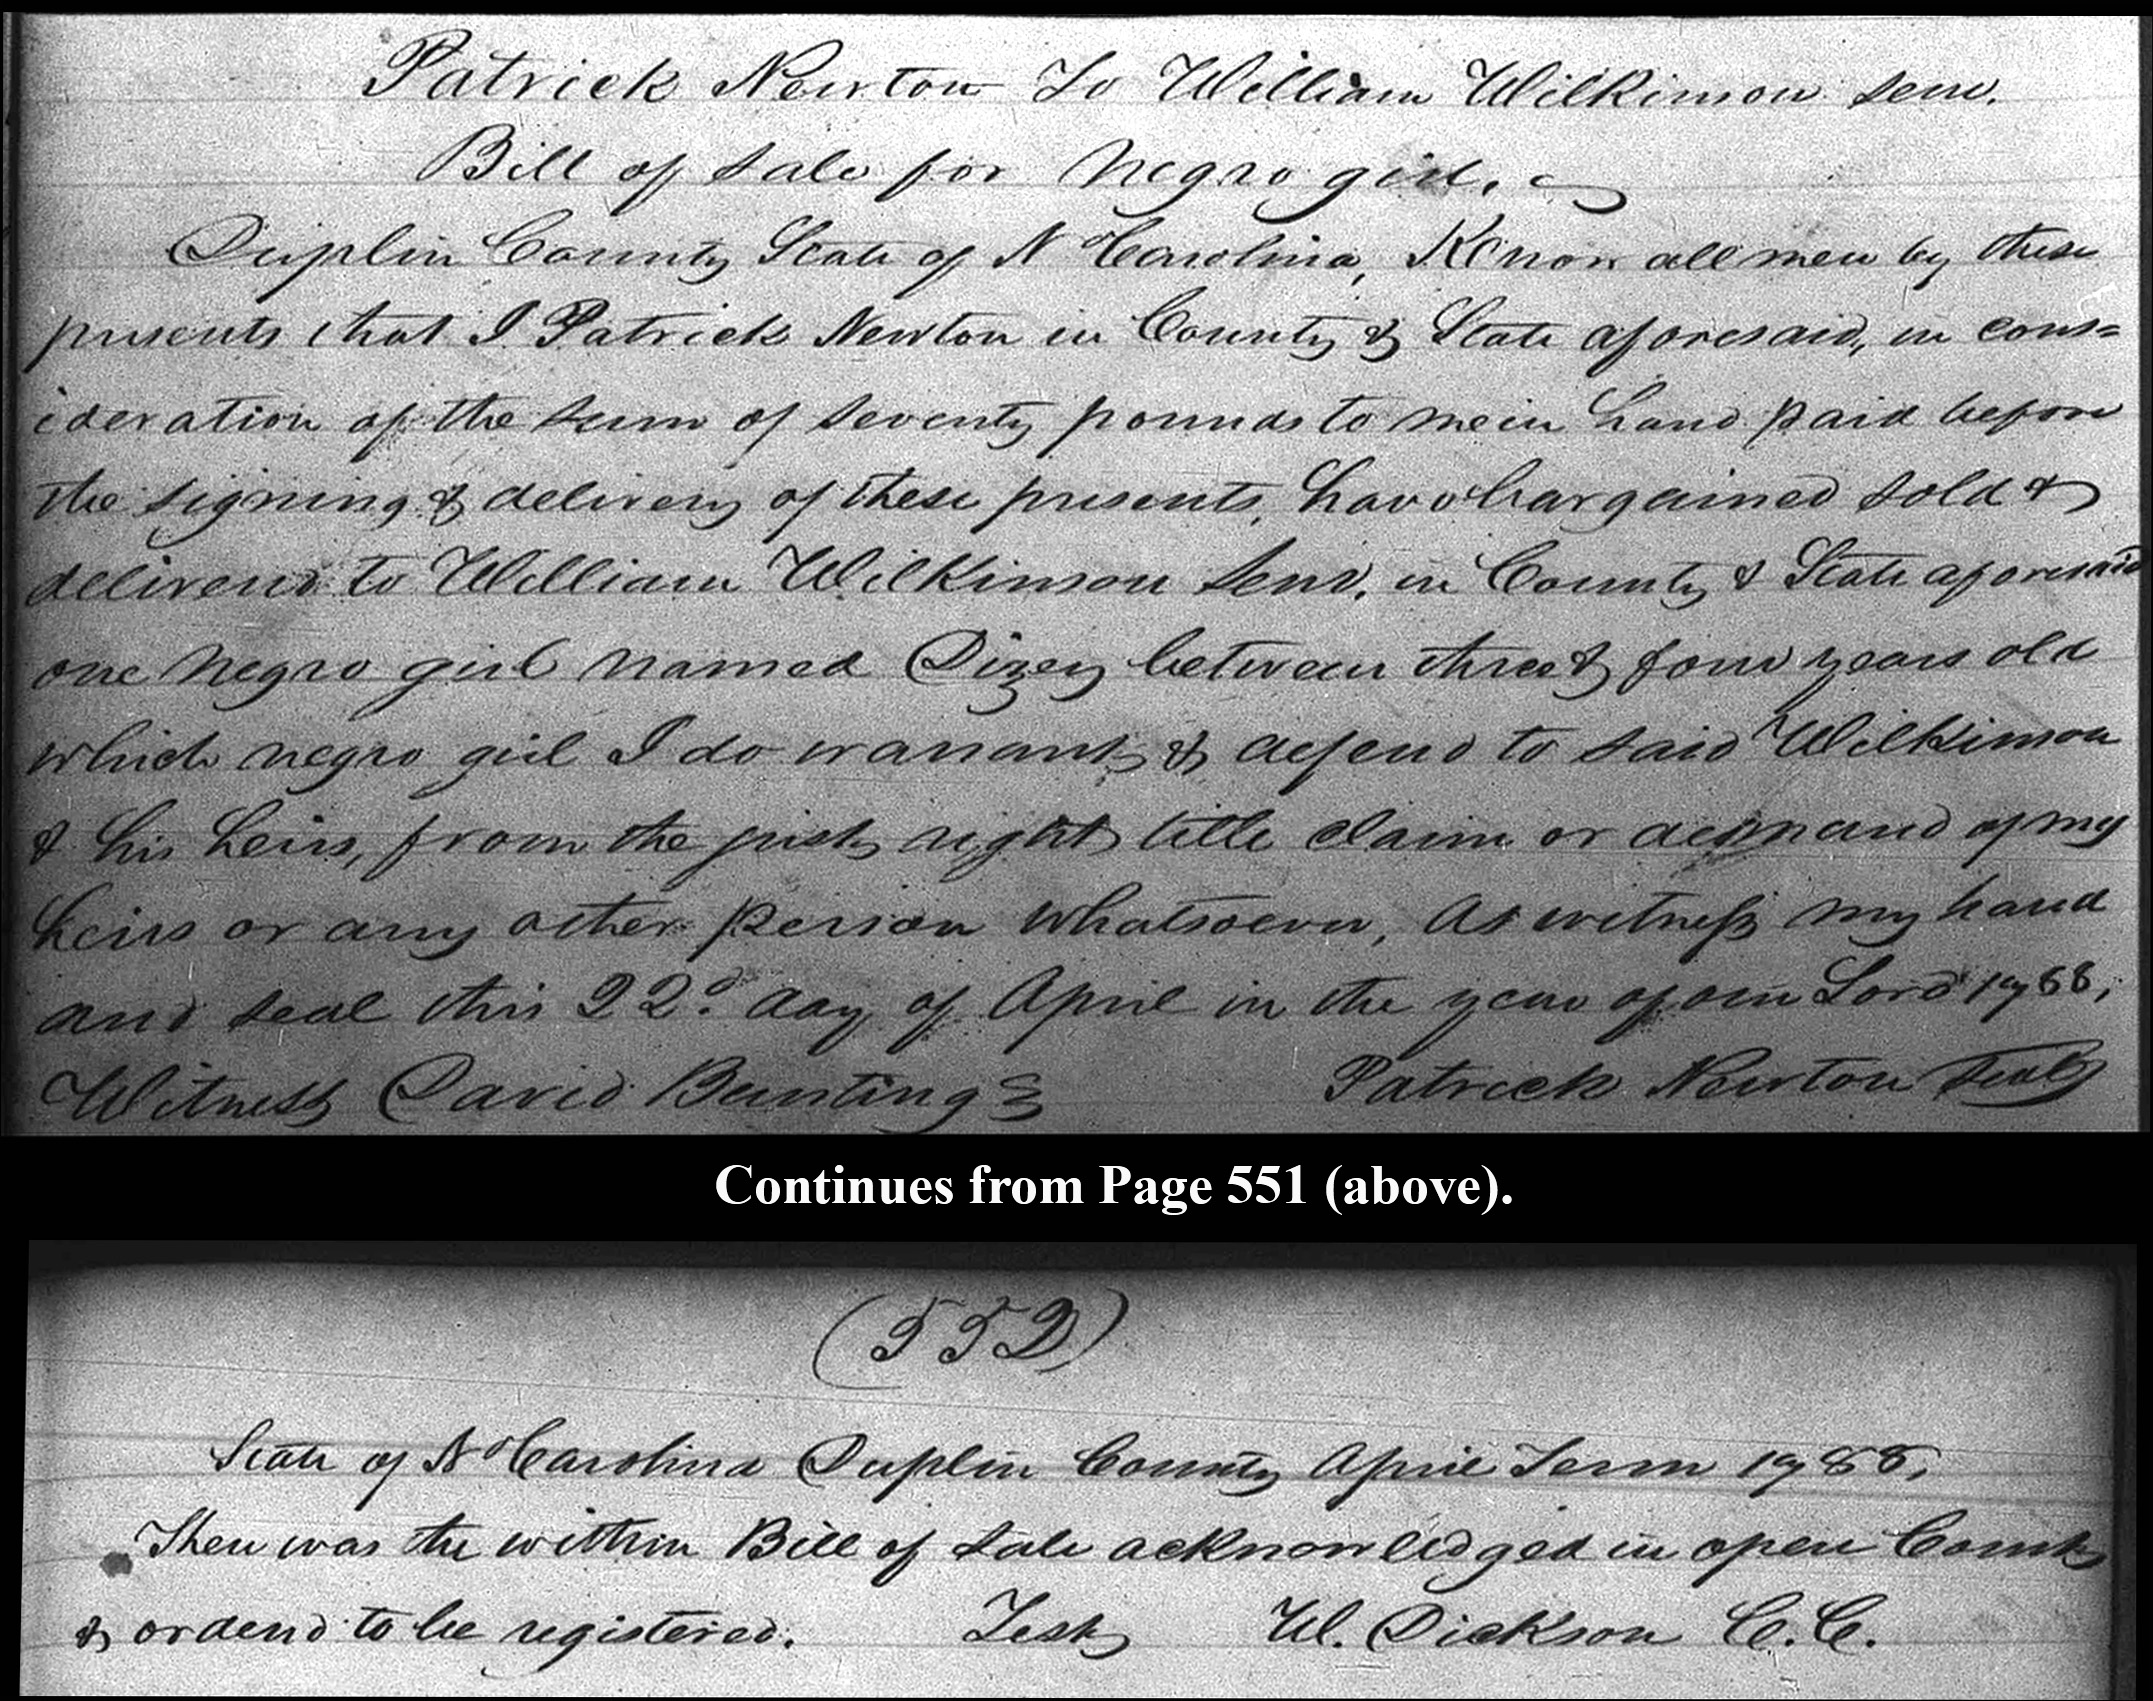 Patrick Newton To William Wilkinson senr.
Bill of sale for Negro girl.
Duplin County State of No Carolina, Know all men by these
presents that I Patrick Newton in County & State aforesaid, in cons=
ideration of the sum of seventy pounds to me in hand paid before
the signing & delivery of these presents, have bargained sold &
delivered to William Wilkinson Senr. in County & State aforesaid
one Negro girl named Dizey between three & four years old
which negro girl I do warrant & defend to said Wilkinson
& his heirs, from the just right title claim or demand of my
heirs or any other person whatsoever, As witness my hand
and seal this 22d. day of April in the year of our Lord 1788,
Witness David Bunting Patrick Newton Seal
Continues from Page 551 (above).
(552)
State of No Carolina Duplin County April Term 1788,
Then was the within Bill of sale acknowledged in open Court
& orderd to be registered. Test W. Dickson C.C.